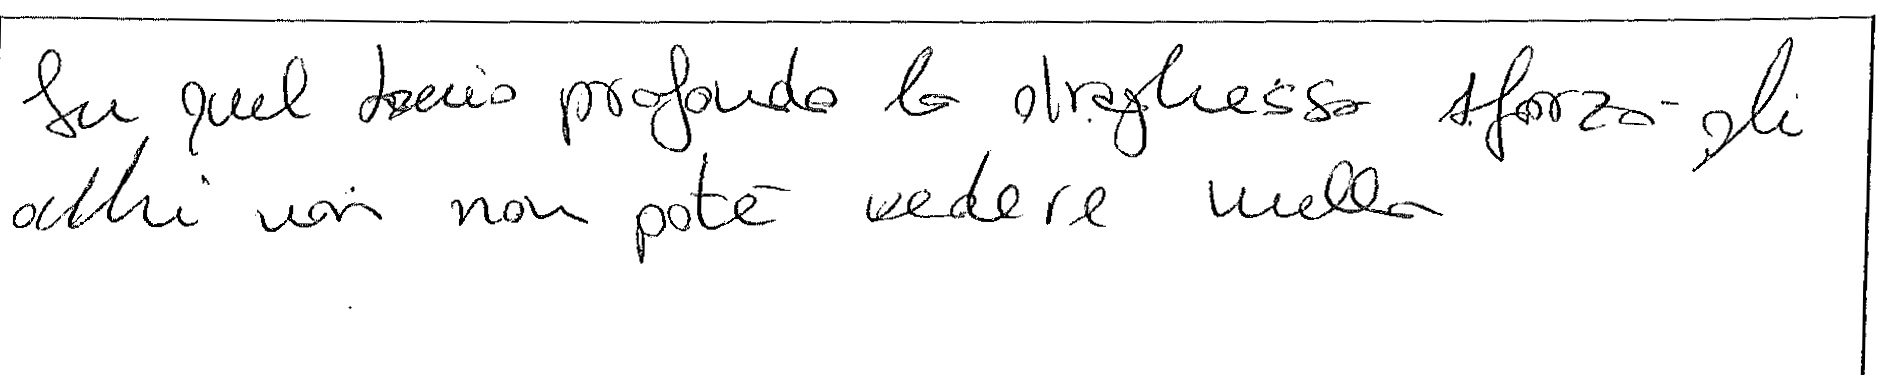 In quel buio profondo la draghessa sforzò gli
occhi non poté vedere nulla